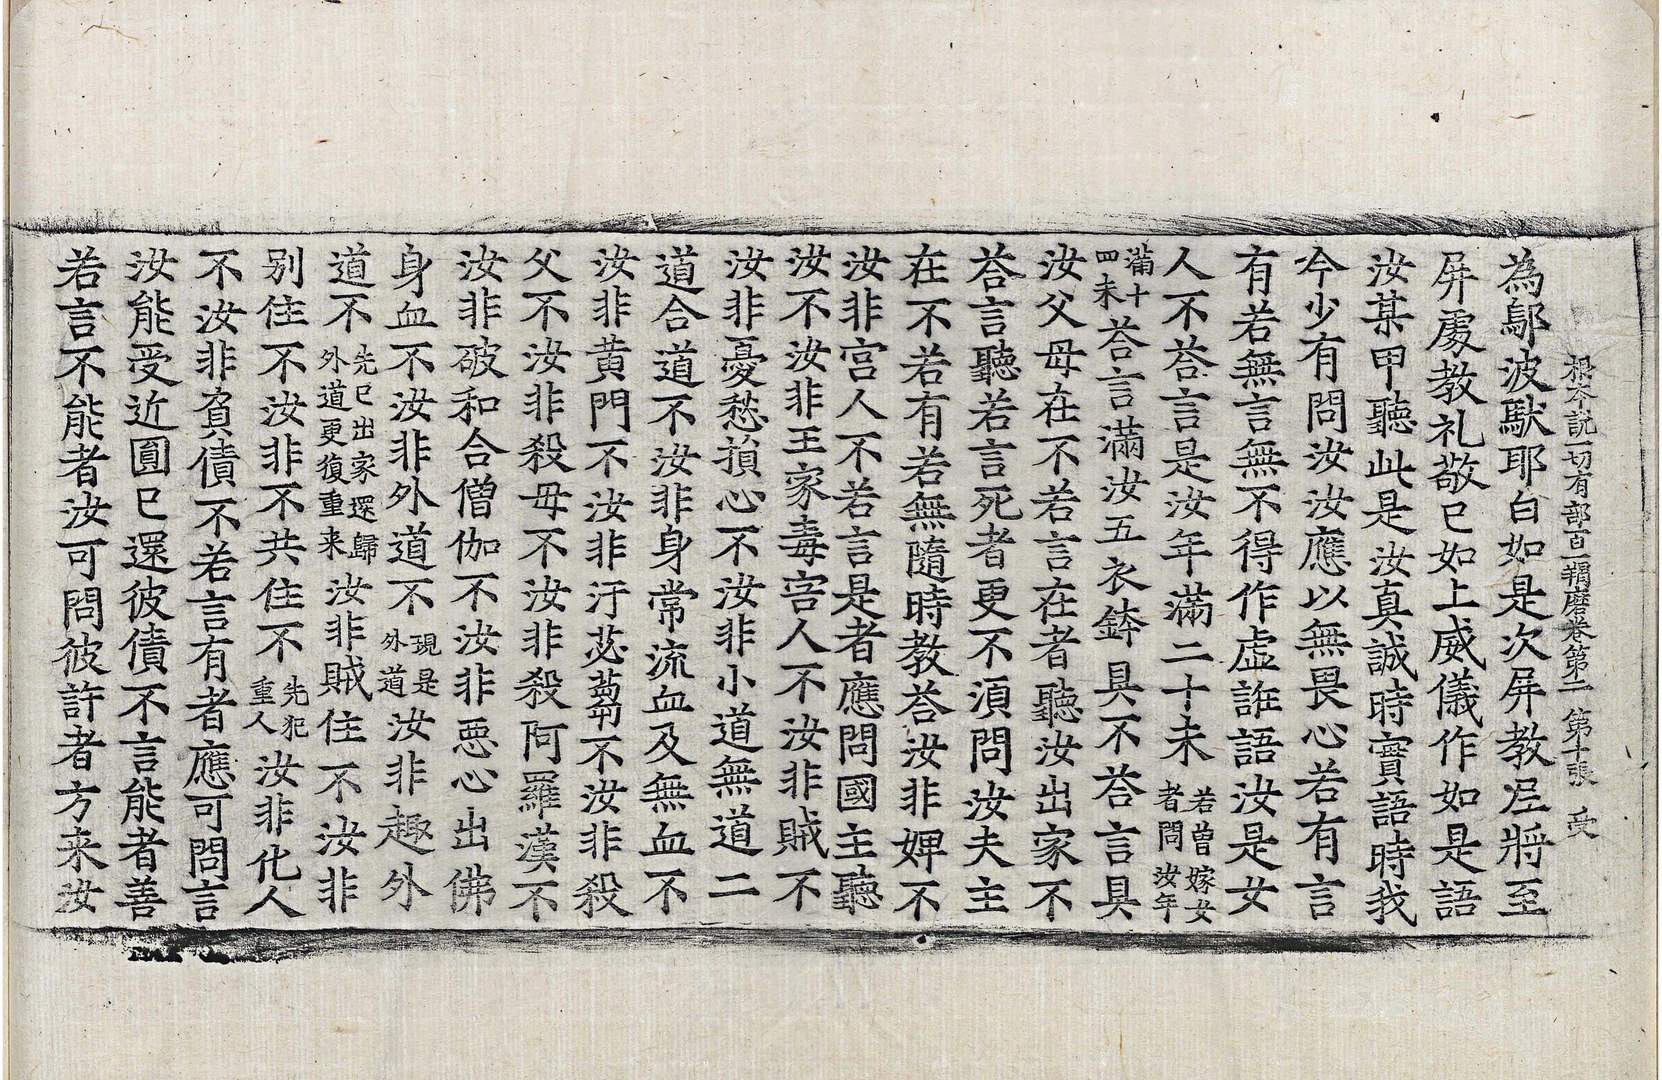 根本說一切有部百一羯磨卷第二 第十張 受
為鄔波馱耶白如是次屏教尼將至
屏處教礼敬已如上威儀作如是語
汝某甲聽此是汝真誠時實語時我
今少有問汝汝應以無畏心若有言
有若無言無不得作虛誑語汝是女
人不荅言是汝年滿二十未若曾嫁女者問汝年
滿十四未荅言滿汝五衣鉢具不荅言具
汝父母在不若言在者聽汝出家不
荅言聽若言死者更不須問汝夫主
在不若有若無隨時教荅汝非婢不
汝非宮人不若言是者應問國主聽
汝不汝非王家毒害人不汝非賊不
汝非憂愁損心不汝非小道無道二
道合道不汝非身常流血及無血不
汝非黃門不汝非汙苾蒭不汝非殺
父不汝非殺母不汝非殺阿羅漢不
汝非破和合僧伽不汝非惡心出佛
身血不汝非外道不現是外道汝非趣外
道不先已出家還歸外道更復重来汝非賊住不汝非
別住不汝非不共住不先犯重人汝非化人
不汝非負債不若言有者應可問言
汝能受近圓已還彼債不言能者善
若言不能者汝可問彼許者方来汝